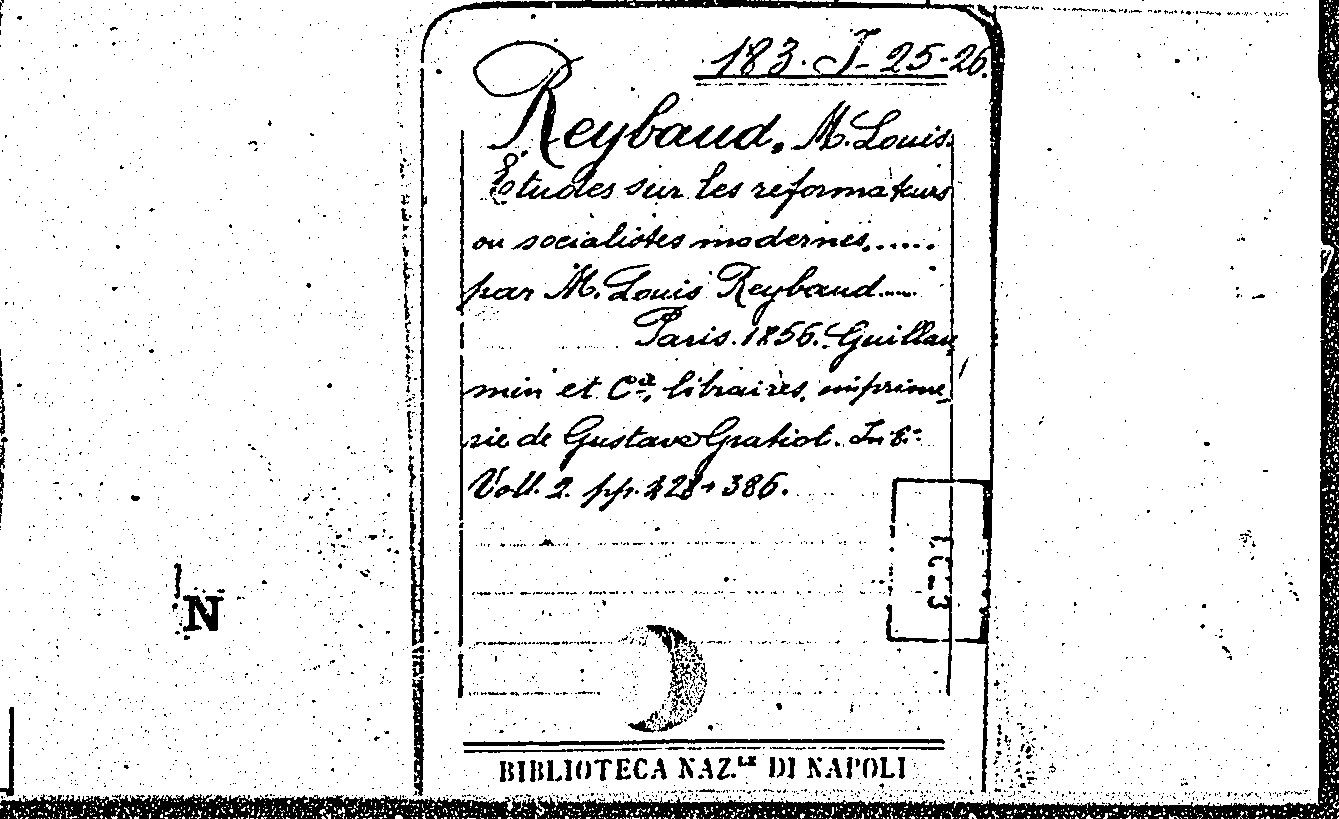 183. J- 25-26.
Reybaud. M. Louis.
Études sur les reformateurs
ou socialistes modernes......
par M. Louis Reybaud.....
Paris. 1856. Guillau
min et Cie, libraires, imprime
rie de Gustave Gratiot. In 8.º
Voll. 2. pp. 428+386.
N
BIBLIOTECA NAZ.LE DI NAPOLI